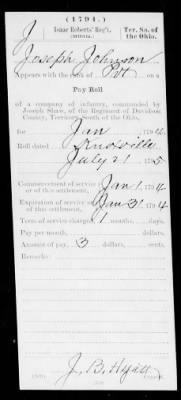 (1794.)
J
Isaac Roberts' Reg't,
(MILITIA.)
Ter. So. of
the Ohio.
Joseph Johnson
Appears with the rank of Pvt on a
Pay Roll
of a company of infantry, commanded by
Joseph Shaw, of the Regiment of Davidson
County, Territory South of the Ohio,
for Jan, 1794.
Roll dated Knoxville
July 21, 1795
Commencement of service
or of this settlement, Jan 1, 1794
Expiration of service or
of this settlement, Jan 31, 1794
Term of service charged, 1 months, days.
Pay per month, dollars, cents.
Amount of pay, 3 dollars, cents.
Remarks:
J. B. Hyatt
Copyist.